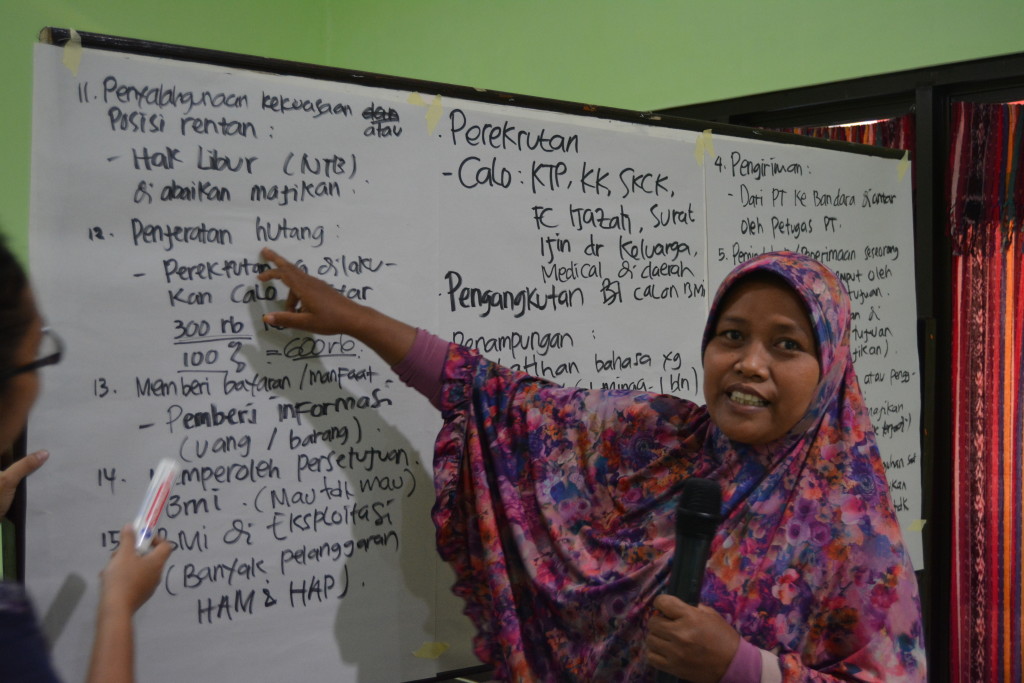 11. Penyalahgunaan kekuasaan dan
atau
Posisi rentan :
- Hak Libur (NTB)
di abaikan majikan
12. Penjeratan hutang :
- Perekrutan dilaku-
kan Calo
300 rb
100 = 600 rb
13. Memberi bayaran / manfaat
- Pemberi informasi
(uang / barang)
14. Memperoleh Persetujuan
BMI . (Mau tdk mau)
15 BMI di Eksploitasi
(Banyak pelanggaran
HAM & HAP) .
Perekrutan
- Calo : KTP, KK, SKCK,
FC Ijazah, Surat
Ijin dr Keluarga,
Medical di daerah
Pengangkutan calon BMI
Penampungan :
bahasa yg
4. Pengiriman :
- Dari PT Ke Bandara diantar
oleh Petugas PT.
5.
oleh
atau
majikan